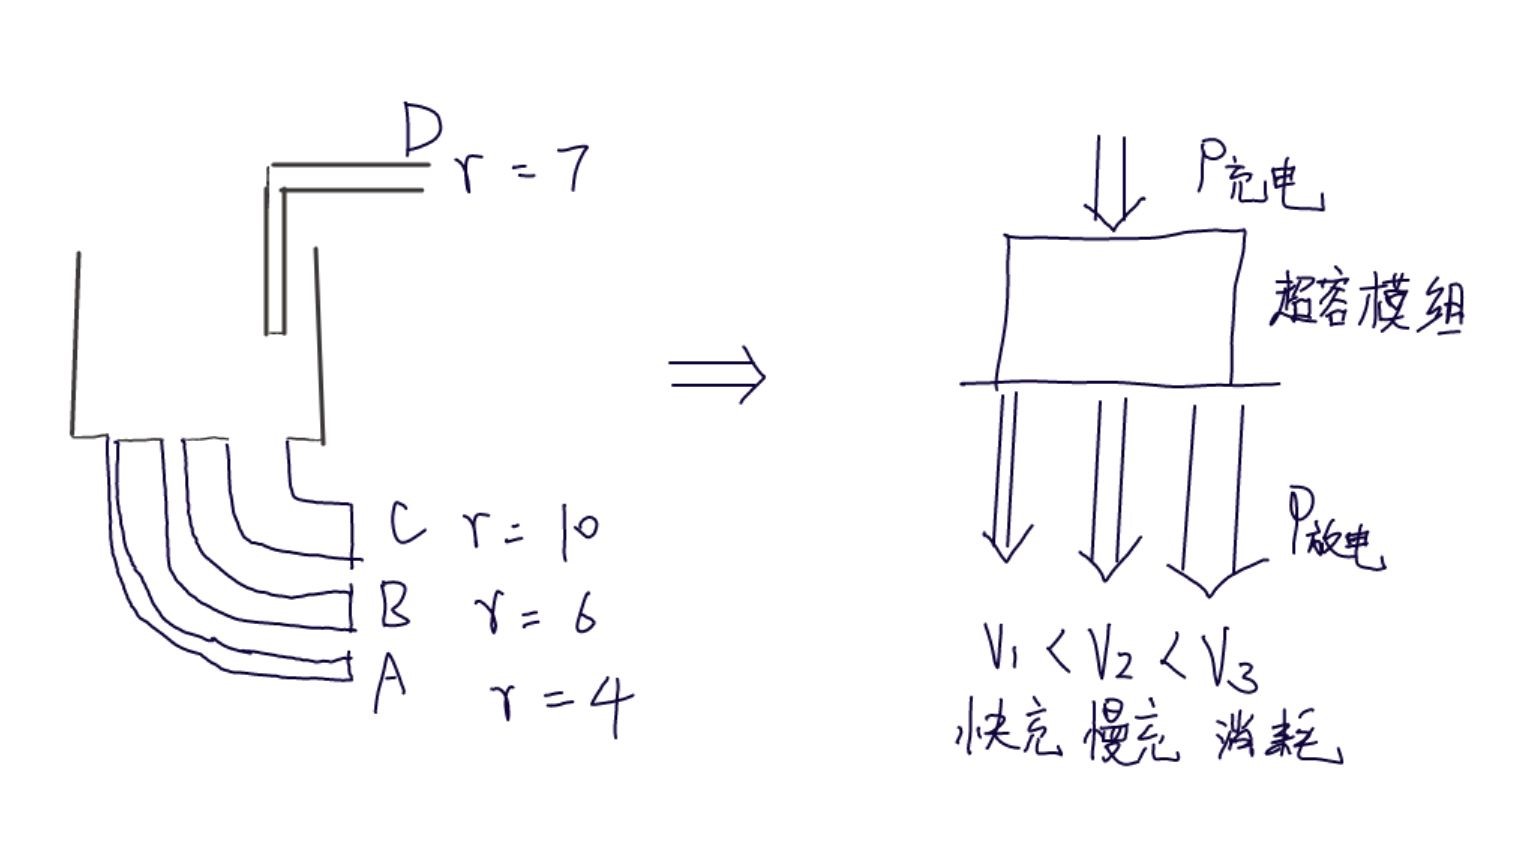 D
r = 7
C r = 10
B r = 6
A r = 4
P充电
超容模组
P放电
V1 < V2 < V3
快充 慢充 消耗